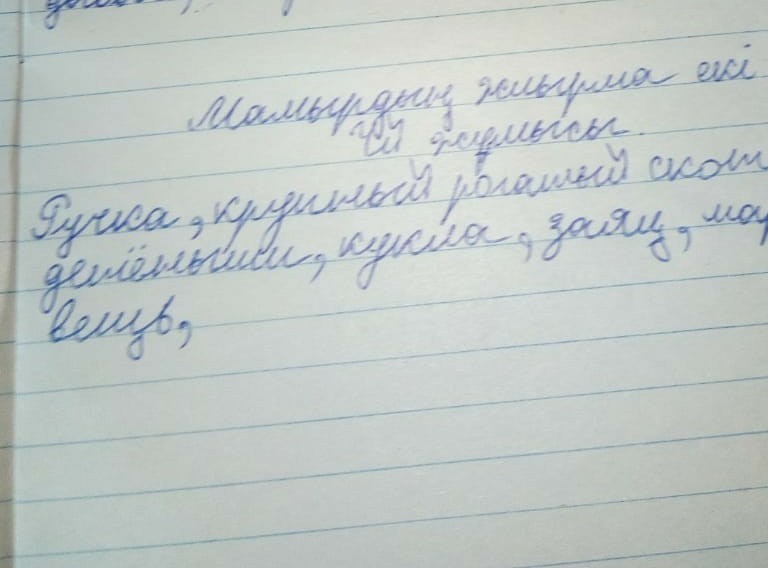 Мамырдың жиырма екі
Үй жұмысы.
Ручка, крупный рогатый скот
детёныши, кукла, заяц, мар
вещь,